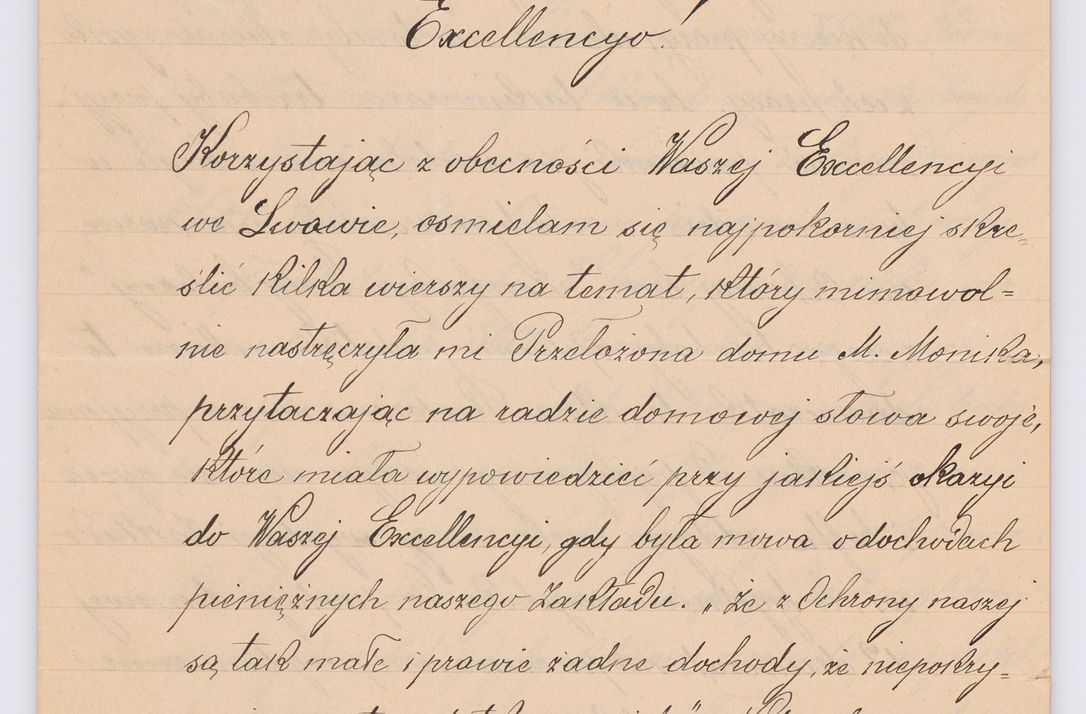 Excellencyo!
Korzystając z obecności Waszej Excellencyi
we Lwowie, osmielam się najpokorniej skre=
ślić kilka wierszy na temat, który mimowol=
nie nastręczyła mi Przełożona domu M. Monika,
przytaczając na radzie domowej słowa swoje,
które miała wypowiedzieć przy jakiejś okazyi
do Waszej Excellencyi, gdy była mowa o dochodach
pieniężnych naszego Zakładu. „że z Ochrony naszej
są tak małe i prawie żadne dochody, że niepokry=